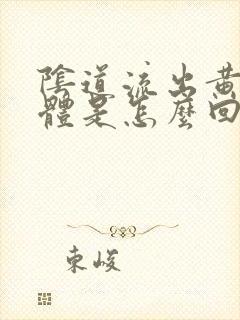 陰道流出黃
體是怎麼回
東峻